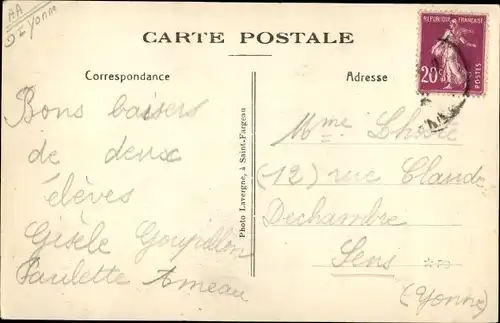 AA
Yonne
CARTE POSTALE
REPUBLIQUE FRANÇAISE
20c
POSTES
Correspondance
Adresse
Bons baisers
de deux
élèves
Gisèle Goupillon
Paulette Ameau
Photo Lavergne, à Saint-Fargeau
Mme Lhoste
(12) rue Claude
Dechambre
Sens
(Yonne)